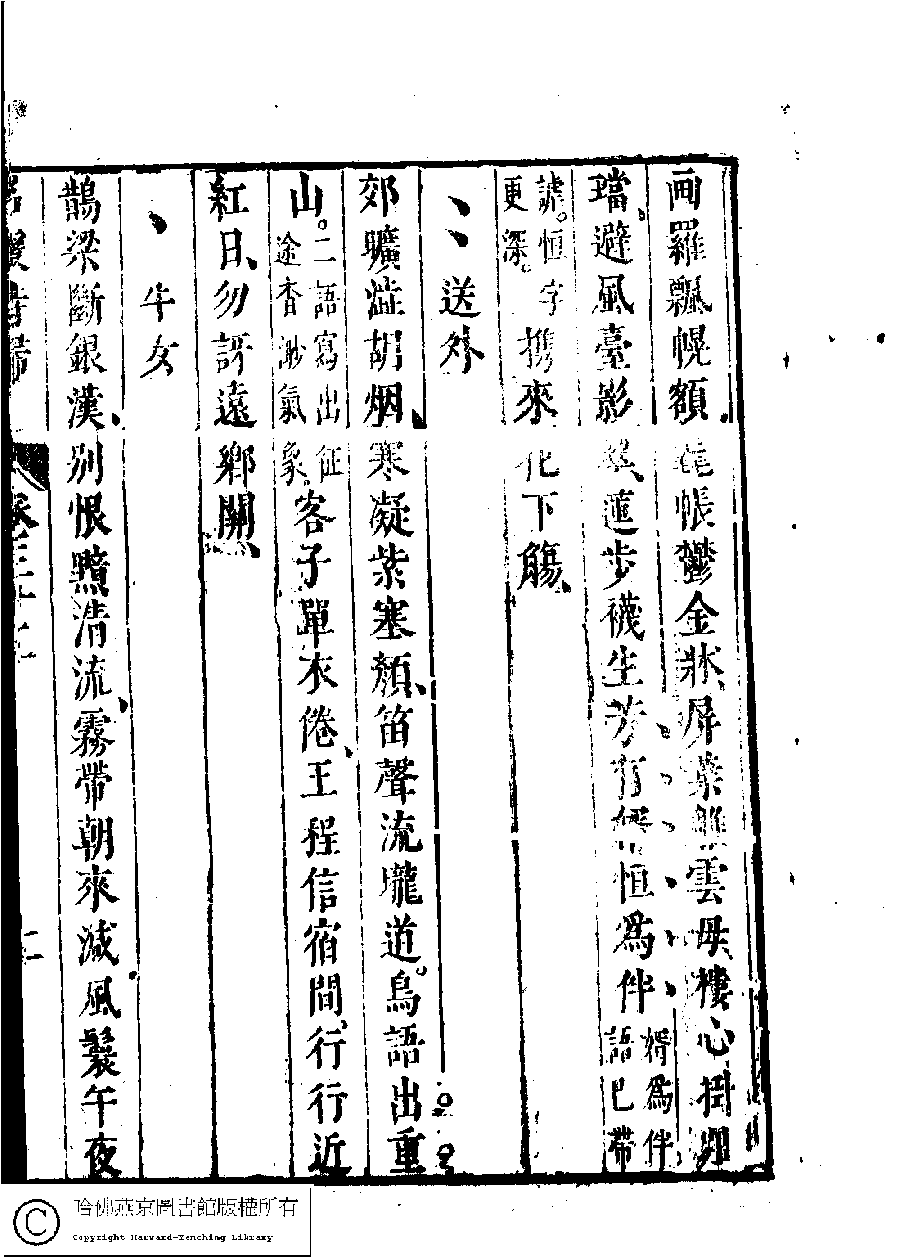 画羅飄幌額帳鬱金牀屏雲母樓心掛
璫避風臺影蓮步襪生芳有恒為伴婿為伴語已帶
謔恒字更深携來化下觴
送外
郊曠澁胡烟寒凝紫塞顏笛聲流隴道鳥語出重
山二語寫出征途杳渺氣象客子單衣倦王程信宿間行行近
紅日勿訝遠鄉關
牛女
鵲梁斷銀漢別恨黯清流霧帶朝來減風鬟午夜
哈佛燕京圖書館版權所有
Copyright Harvard-Yenching Library